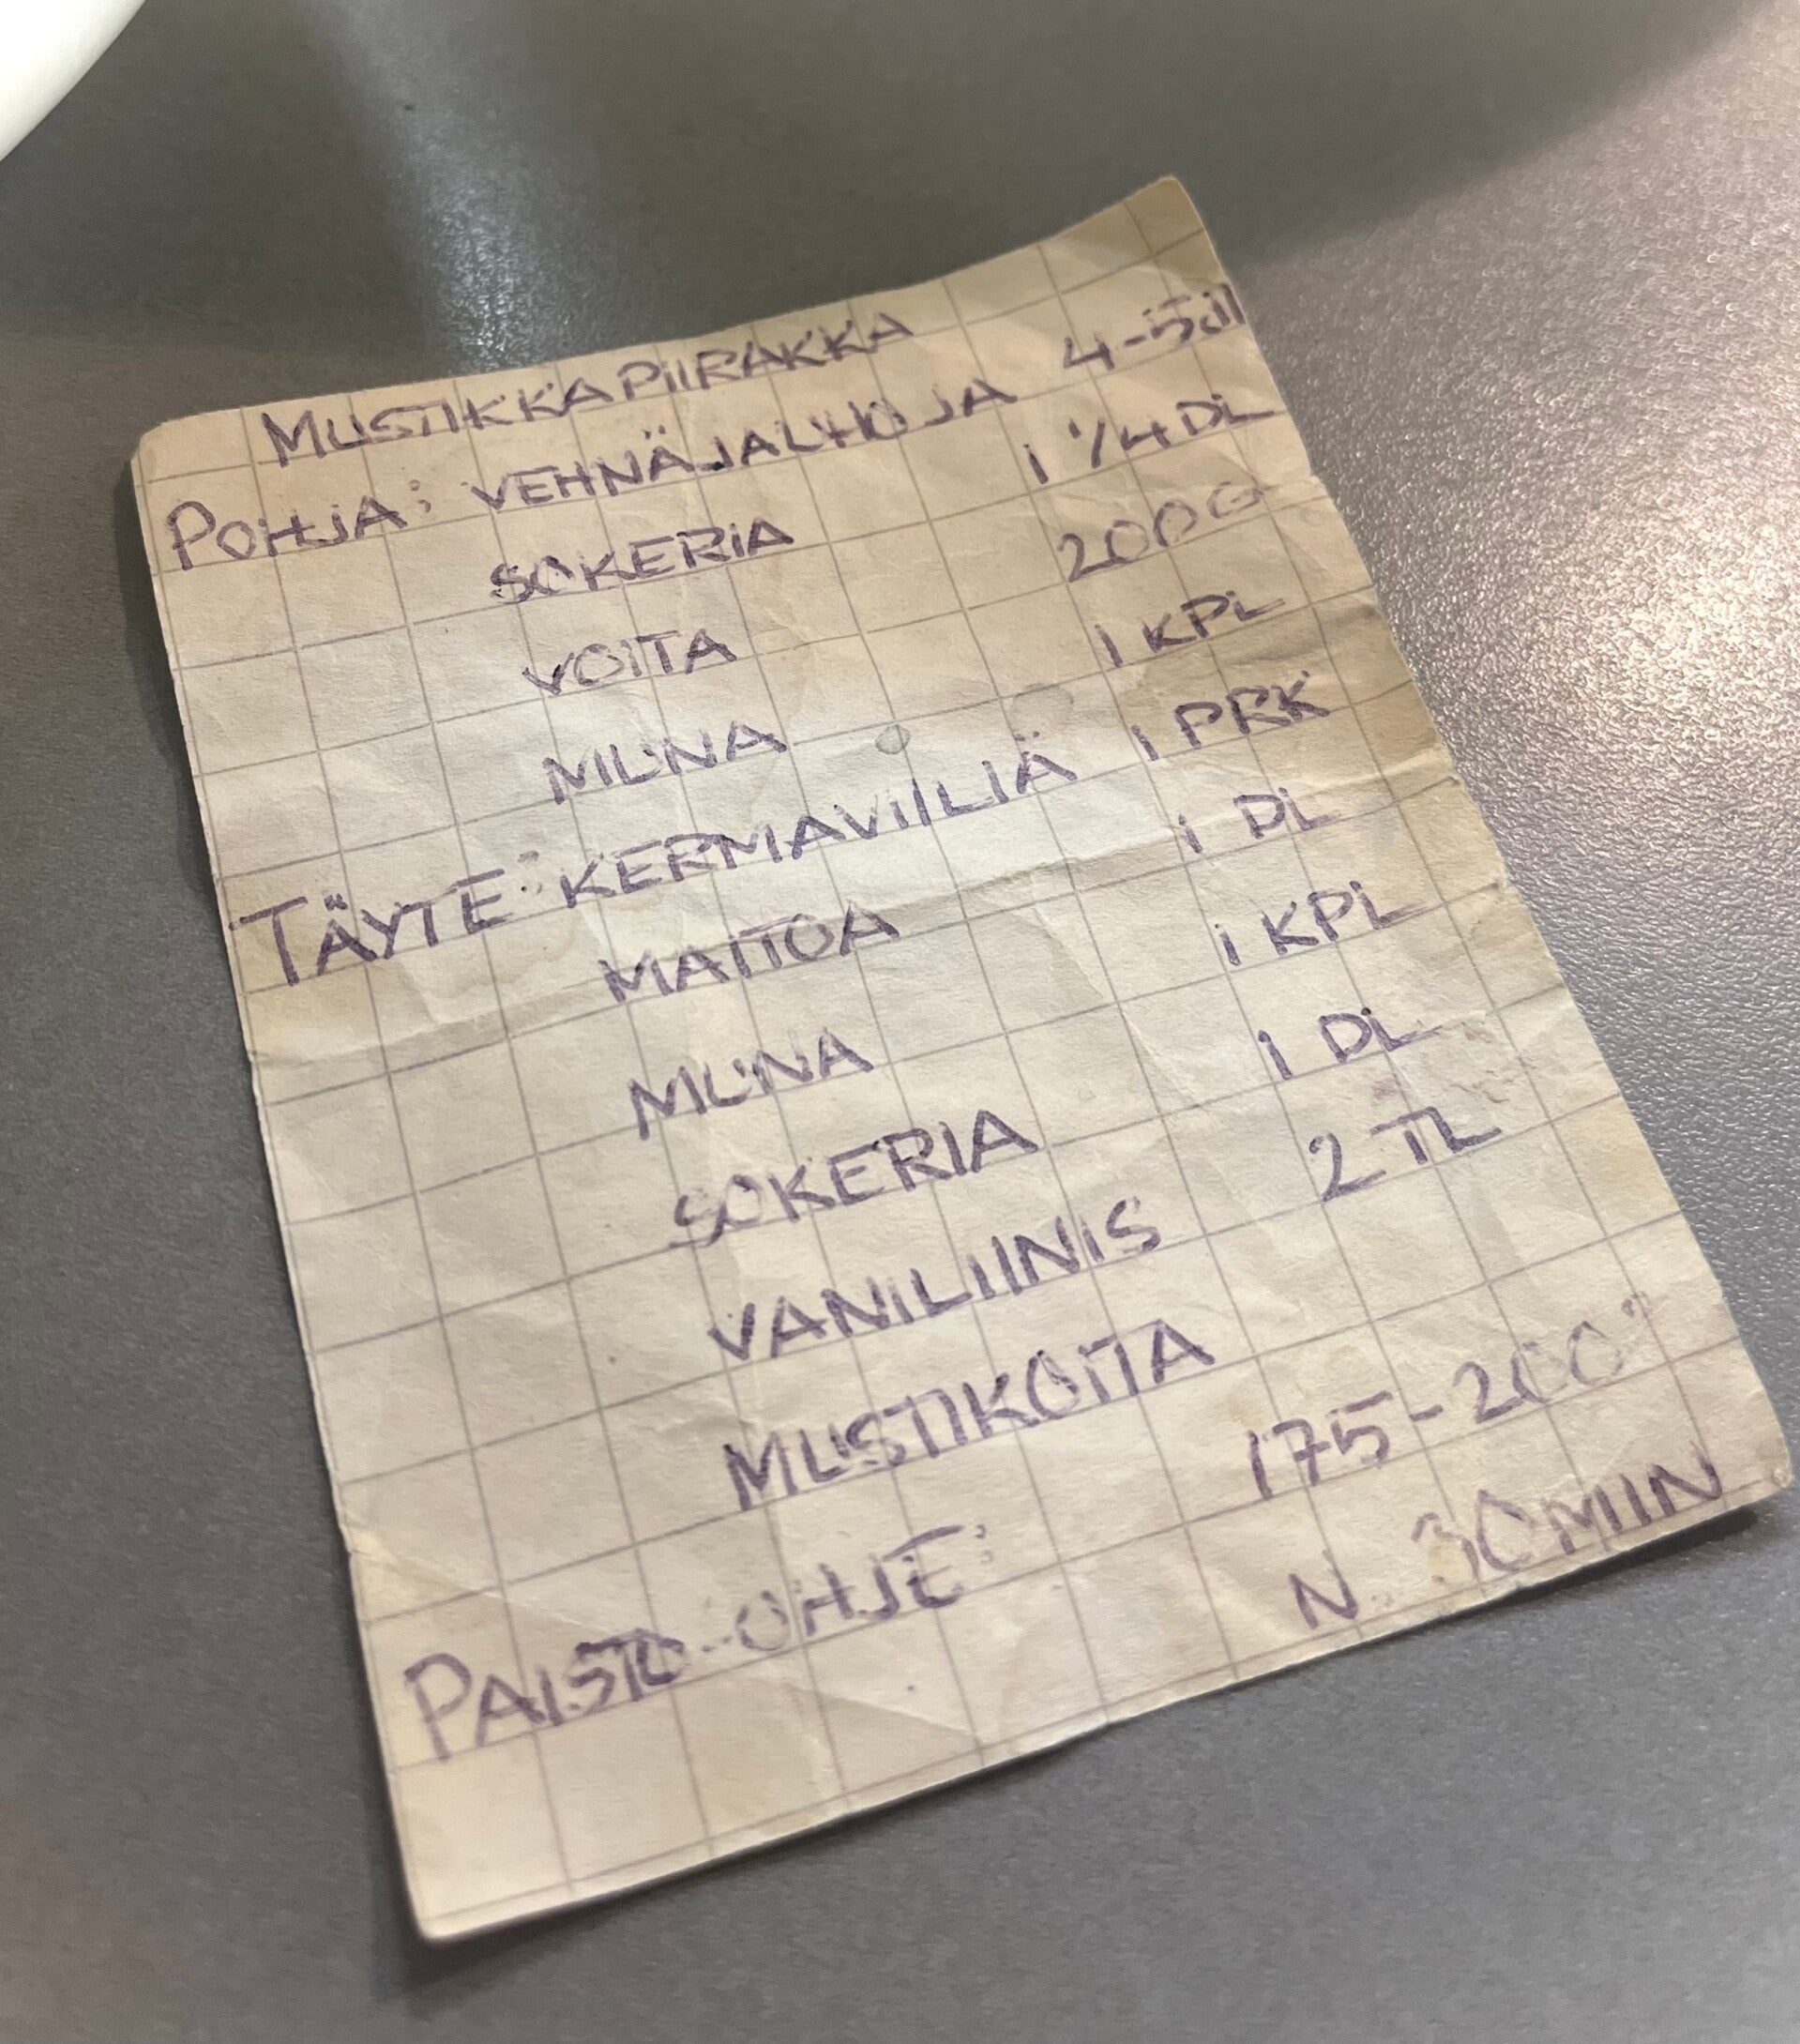 MUSTIKKAPIIRAKKA
POHJA: VEHNÄJAUHOJA 4-5dl
SOKERIA 1 1/4 DL
VOITA 200G
MUNA 1 KPL
TÄYTE: KERMAVIILIÄ 1 PRK
MAITOA 1 DL
MUNA 1 KPL
SOKERIA 1 DL
VANILIINIS 2 TL
MUSTIKOITA
PAISTO-OHJE: 175-200°
N. 30MIIN